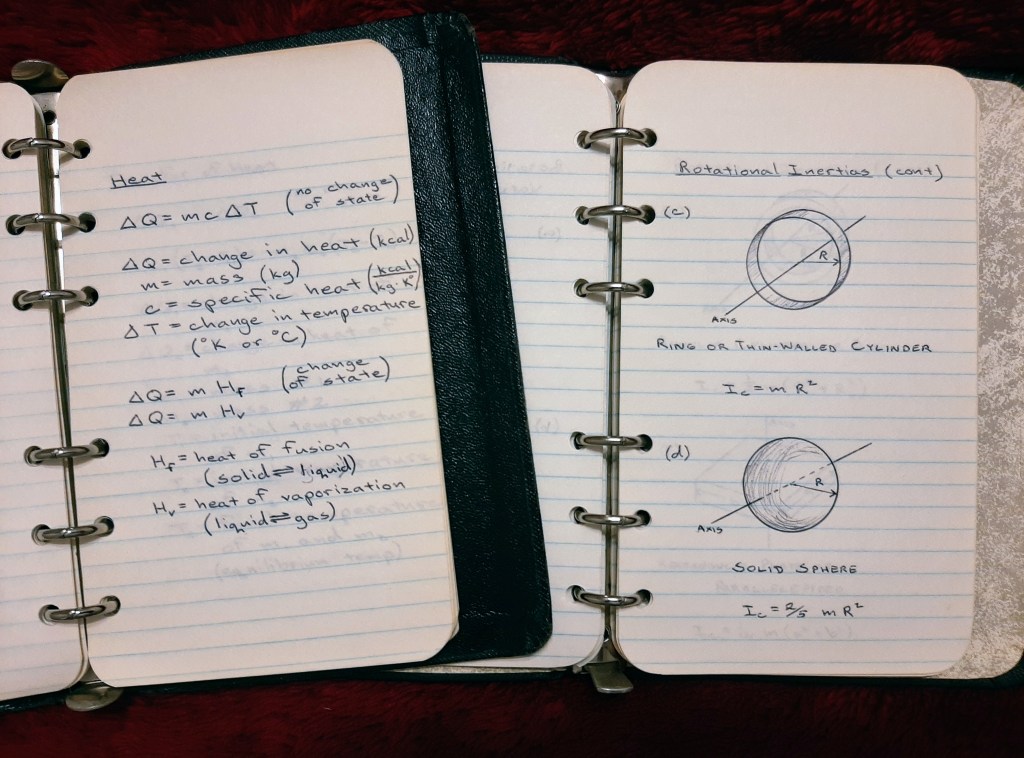 Heat
ΔQ = mcΔT (no change of state)
ΔQ = change in heat (kcal)
m = mass (kg)
c = specific heat (kcal/kg·K)
ΔT = change in temperature
(°K or °C)
ΔQ = m H_f (change of state)
ΔQ = m H_v
H_f = heat of fusion
(solid ⇌ liquid)
H_v = heat of vaporization
(liquid ⇌ gas)
Rotational Inertias (cont)
(c)
R
Axis
RING OR THIN-WALLED CYLINDER
I_c = m R²
(d)
R
Axis
SOLID SPHERE
I_c = 2/5 m R²